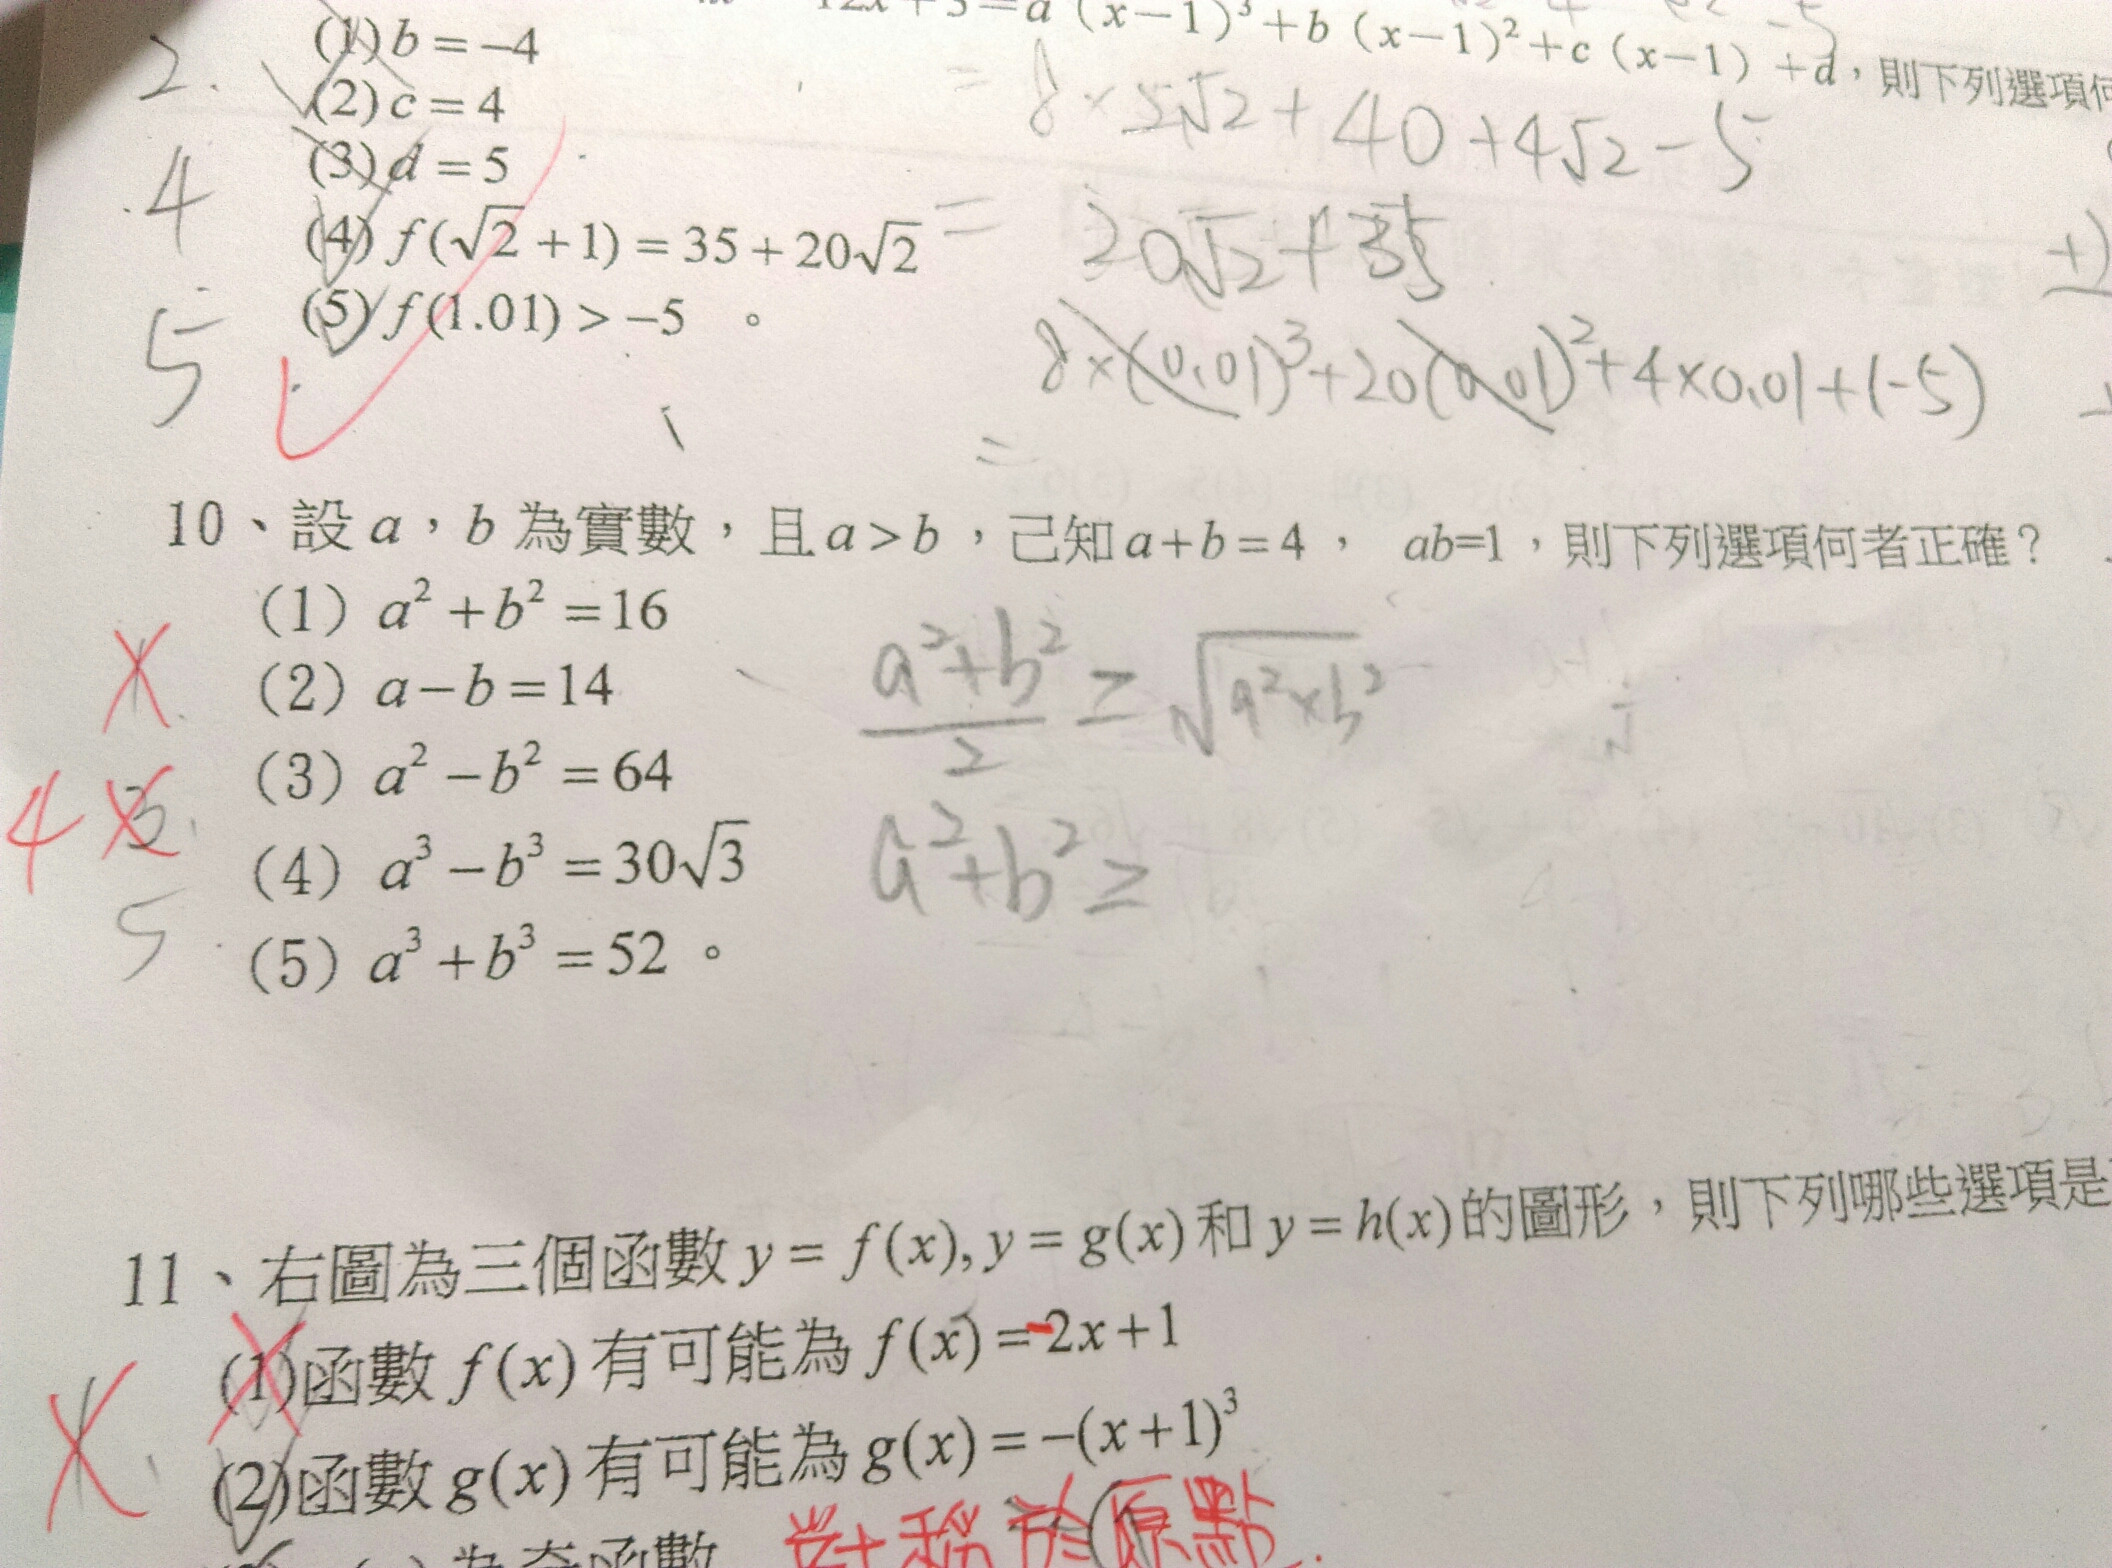 12x+5=a（x－1）³＋b（x－1）²＋c（x－1）＋d，則下列選項
2. (1) b = −4
(2) c = 4
4 (3) d = 5
(4) f(√2 + 1) = 35 + 20√2
5 (5) f(1.01) > −5 。
= 8×2√2+40+4√2-5
= 20√2+35
8×(0.01)³+20(0.01)²+4×0.01+(-5)
=
10、設 a，b 為實數，且 a > b，己知 a + b = 4， ab=1，則下列選項何者正確？
（1）a² + b² = 16
（2）a − b = 14
（3）a² − b² = 64
4 3. （4）a³ − b³ = 30√3
5 （5）a³ + b³ = 52 。
a²+b²/2 ≥ √a²×b²
a²+b² ≥
11、右圖為三個函數 y = f(x), y = g(x) 和 y = h(x) 的圖形，則下列哪些選項是
(1)函數 f(x) 有可能為 f(x) = -2x + 1
(2)函數 g(x) 有可能為 g(x) = −(x + 1)³
為奇函數 對稱於原點.